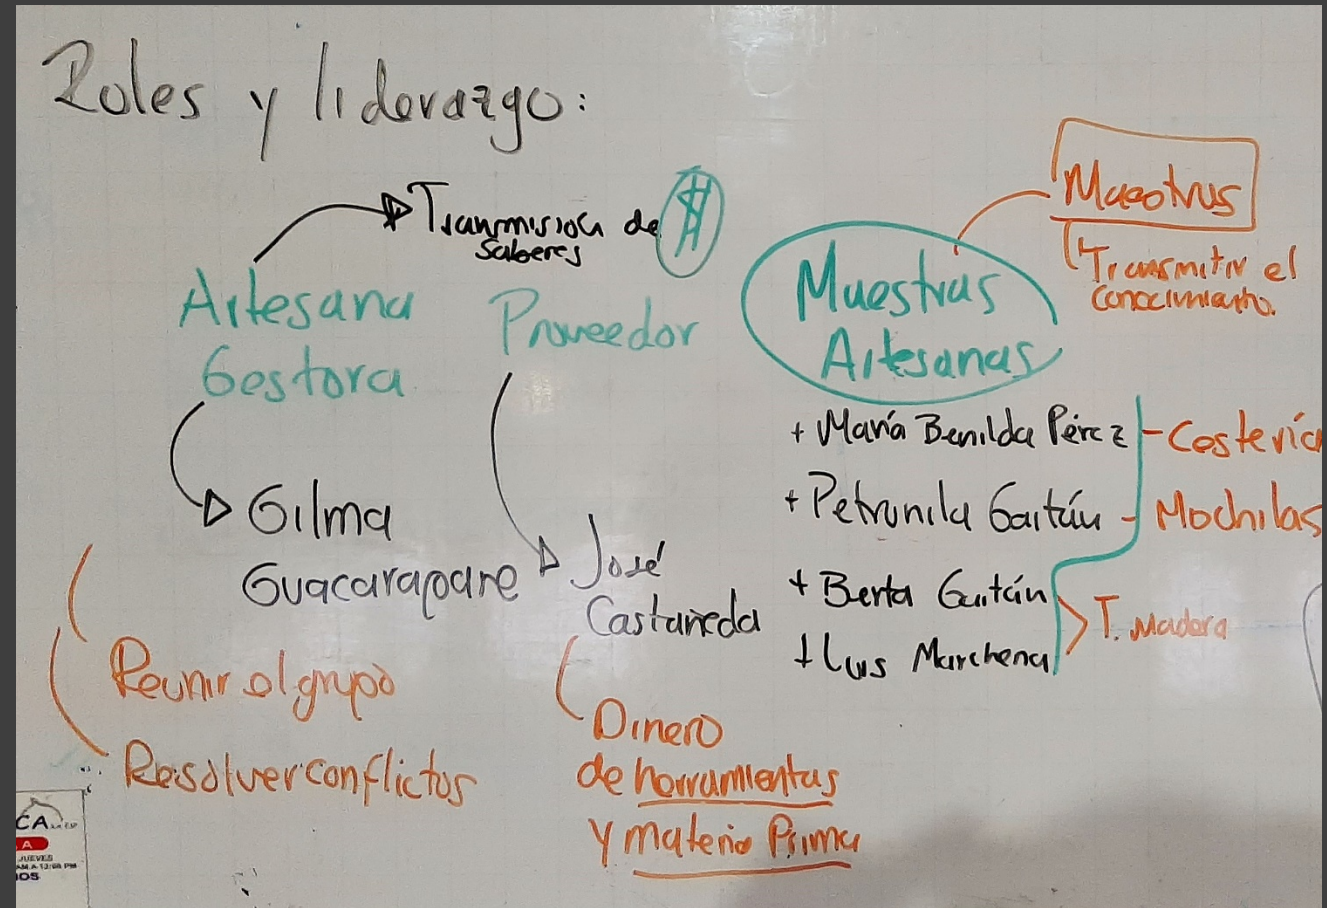 Roles y liderazgo:
Transmisión de $
saberes
Artesana
Gestora
Gilma
Guacarapare
Reunir el grupo
Resolver conflictos
Proveedor
José
Castañeda
Dinero
de herramientas
y materia Prima
Maestras
Transmitir el
conocimiento.
Muestras
Artesanas
+ María Benilda Pérez - Costería
+ Petronila Gaitán - Mochilas
+ Berta Gaitán
+ Luis Marchena
T. Madera
CA
A
JUEVES